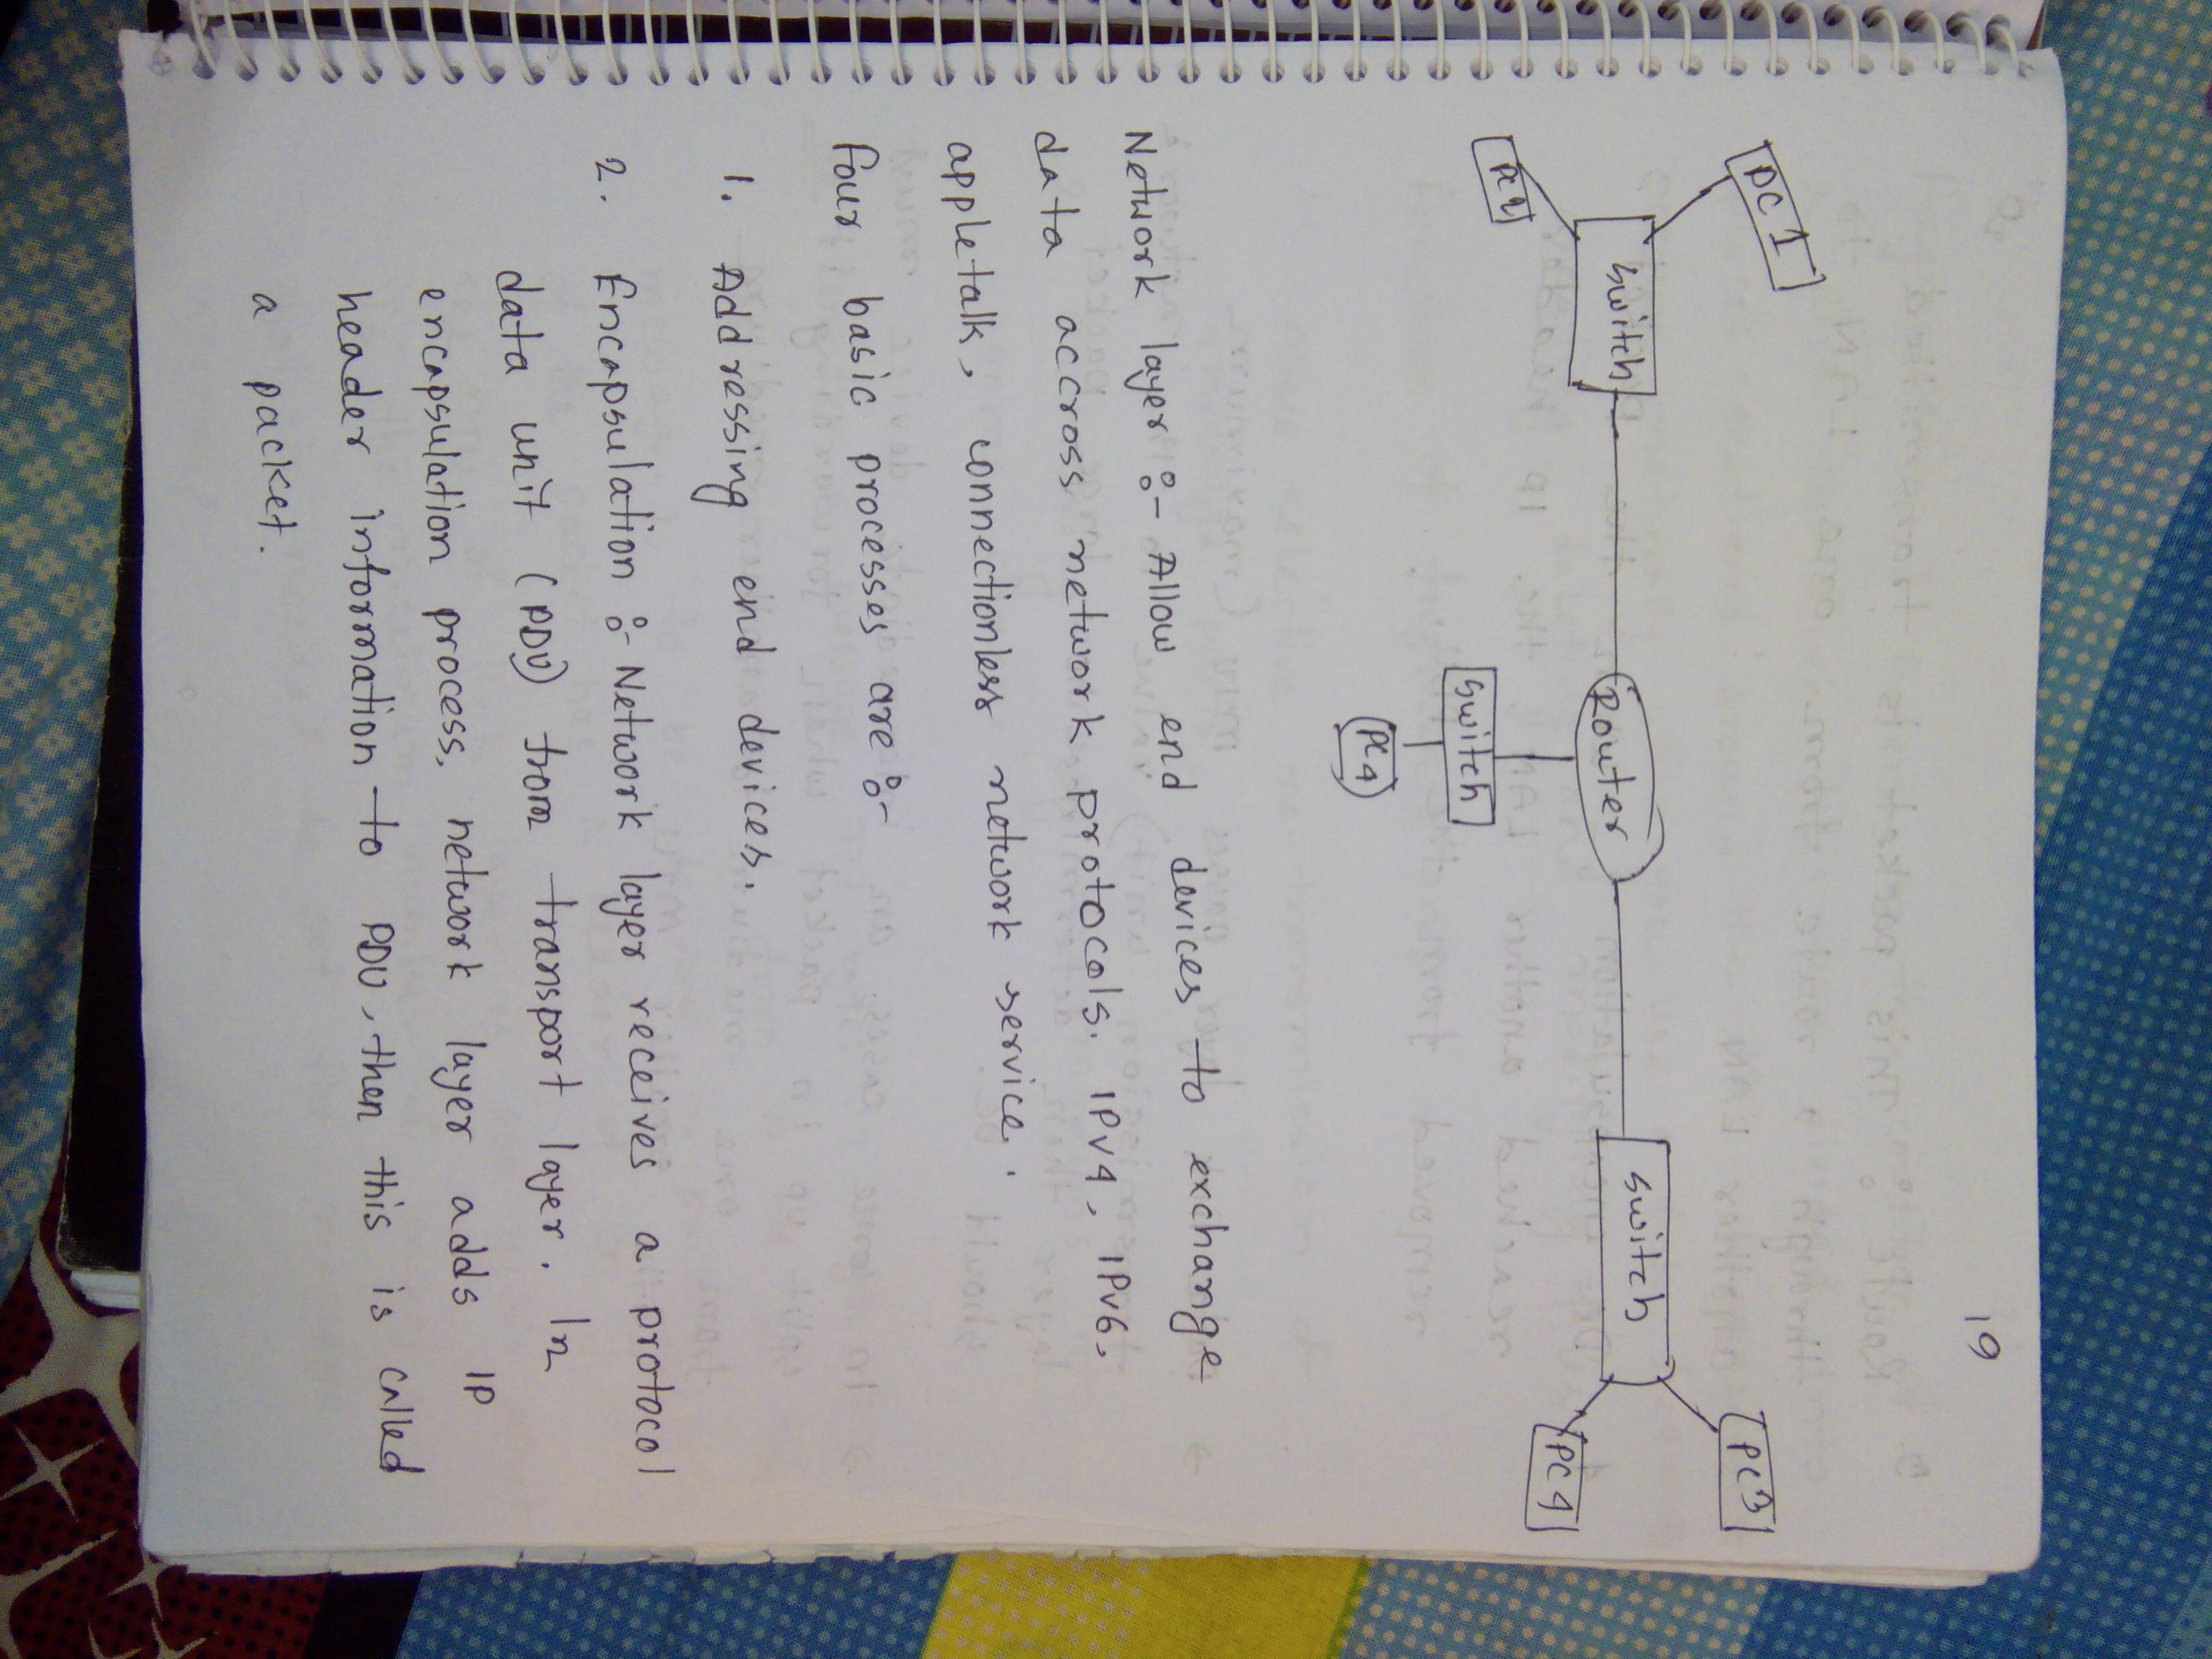 19
PC 1
PC 3
Switch
Router
Switch
PC 2
PC 4
Switch
PC 4
Network layer :- Allow end devices to exchange
data accross network protocols. IPv4, IPv6,
appletalk, connectionless network service.
Four basic processes are :-
1. Addressing end devices.
2. Encapsulation :- Network layer receives a protocol
data unit (PDU) from transport layer. In
encapsulation process, network layer adds IP
header information to PDU, then this is called
a packet.